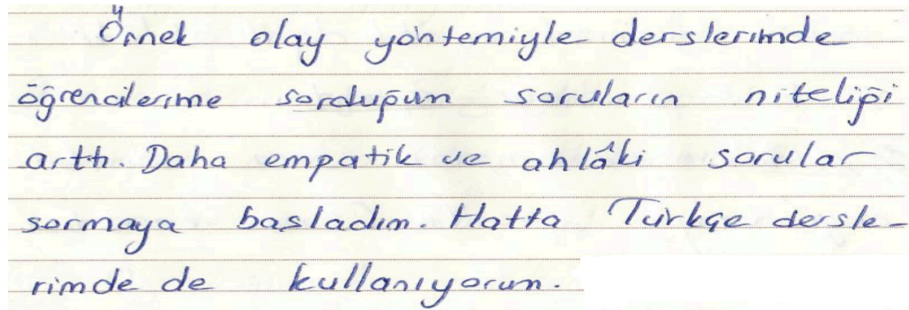 Örnek olay yöntemiyle derslerimde
öğrencilerime sorduğum soruların niteliği
arttı. Daha empatik ve ahlâki sorular
sormaya başladım. Hatta Türkçe dersle-
rimde de kullanıyorum.